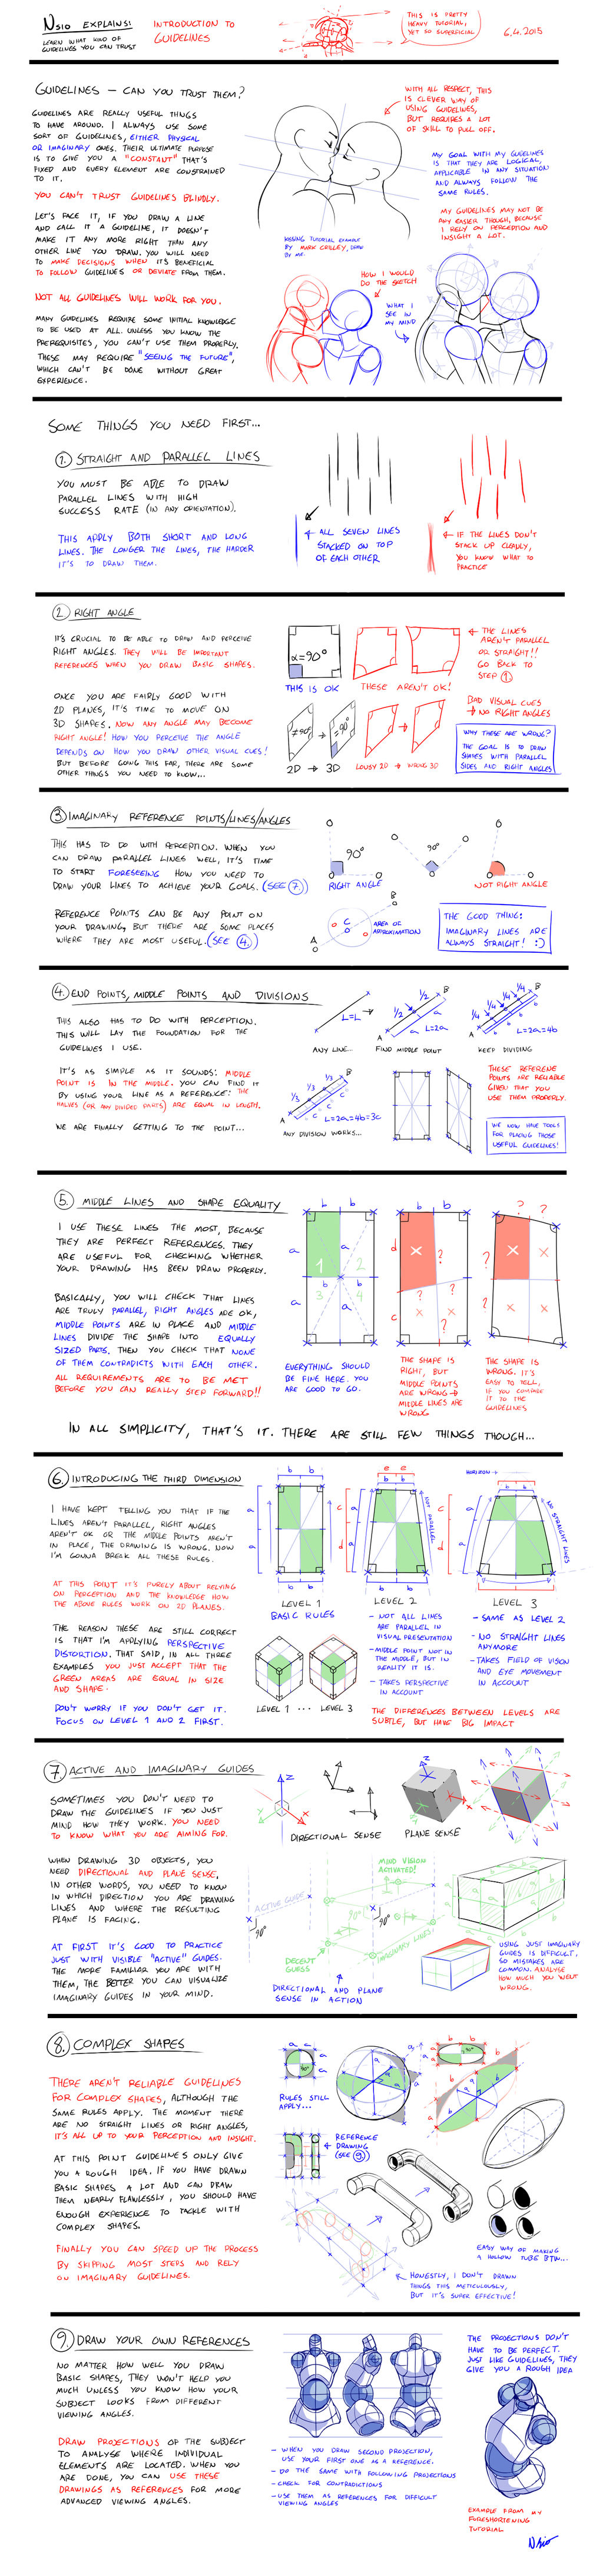 NSIO EXPLAINS!
LEARN WHAT KIND OF
GUIDELINES YOU CAN TRUST
INTRODUCTION TO
GUIDELINES
THIS IS PRETTY
HEAVY TUTORIAL,
YET SO SUPERFICIAL
6.4.2015
GUIDELINES – CAN YOU TRUST THEM?
GUIDELINES ARE REALLY USEFUL THINGS
TO HAVE AROUND. I ALWAYS USE SOME
SORT OF GUIDELINES, EITHER PHYSICAL
OR IMAGINARY ONES. THEIR ULTIMATE PURPOSE
IS TO GIVE YOU A "CONSTANT" THAT'S
FIXED AND EVERY ELEMENT ARE CONSTRAINED
TO IT.
YOU CAN'T TRUST GUIDELINES BLINDLY.
LET'S FACE IT, IF YOU DRAW A LINE
AND CALL IT A GUIDELINE, IT DOESN'T
MAKE IT ANY MORE RIGHT THAN ANY
OTHER LINE YOU DRAW. YOU WILL NEED
TO MAKE DECISIONS WHEN IT'S BENEFICIAL
TO FOLLOW GUIDELINES OR DEVIATE FROM THEM.
NOT ALL GUIDELINES WILL WORK FOR YOU.
MANY GUIDELINES REQUIRE SOME INITIAL KNOWLEDGE
TO BE USED AT ALL. UNLESS YOU KNOW THE
PREREQUISITES, YOU CAN'T USE THEM PROPERLY.
THESE MAY REQUIRE "SEEING THE FUTURE",
WHICH CAN'T BE DONE WITHOUT GREAT
EXPERIENCE.
WITH ALL RESPECT, THIS
IS CLEVER WAY OF
USING GUIDELINES,
BUT REQUIRES A LOT
OF SKILL TO PULL OFF.
MY GOAL WITH MY GUIDELINES
IS THAT THEY ARE LOGICAL,
APPLICABLE IN ANY SITUATION
AND ALWAYS FOLLOW THE
SAME RULES.
MY GUIDELINES MAY NOT BE
ANY EASIER THOUGH, BECAUSE
I RELY ON PERCEPTION AND
INSIGHT A LOT.
KISSING TUTORIAL EXAMPLE
BY MARK CRILLEY, DRAWN
BY ME.
HOW I WOULD
DO THE SKETCH
WHAT I
SEE IN
MY MIND
SOME THINGS YOU NEED FIRST...
1. STRAIGHT AND PARALLEL LINES
YOU MUST BE ABLE TO DRAW
PARALLEL LINES WITH HIGH
SUCCESS RATE (IN ANY ORIENTATION).
THIS APPLY BOTH SHORT AND LONG
LINES. THE LONGER THE LINES, THE HARDER
IT'S TO DRAW THEM.
ALL SEVEN LINES
STACKED ON TOP
OF EACH OTHER
IF THE LINES DON'T
STACK UP CLEANLY,
YOU KNOW WHAT TO
PRACTICE
2. RIGHT ANGLE
IT'S CRUCIAL TO BE ABLE TO DRAW AND PERCEIVE
RIGHT ANGLES. THEY WILL BE IMPORTANT
REFERENCES WHEN YOU DRAW BASIC SHAPES.
ONCE YOU ARE FAIRLY GOOD WITH
2D PLANES, IT'S TIME TO MOVE ON
3D SHAPES. NOW ANY ANGLE MAY BECOME
RIGHT ANGLE! HOW YOU PERCEIVE THE ANGLE
DEPENDS ON HOW YOU DRAW OTHER VISUAL CUES!
BUT BEFORE GOING THIS FAR, THERE ARE SOME
OTHER THINGS YOU NEED TO KNOW...
α=90°
THIS IS OK
THESE AREN'T OK!
THE LINES
AREN'T PARALLEL
OR STRAIGHT!!
GO BACK TO
STEP 1.
≠90°
90°
2D → 3D
LOUSY 2D → WRONG 3D
BAD VISUAL CUES
→ NO RIGHT ANGLES
WHY THESE ARE WRONG?
THE GOAL IS TO DRAW
SHAPES WITH PARALLEL
SIDES AND RIGHT ANGLES
3. IMAGINARY REFERENCE POINTS/LINES/ANGLES
THIS HAS TO DO WITH PERCEPTION. WHEN YOU
CAN DRAW PARALLEL LINES WELL, IT'S TIME
TO START FORESEEING HOW YOU NEED TO
DRAW YOUR LINES TO ACHIEVE YOUR GOALS. (SEE 7.)
REFERENCE POINTS CAN BE ANY POINT ON
YOUR DRAWING, BUT THERE ARE SOME PLACES
WHERE THEY ARE MOST USEFUL. (SEE 4.)
90°
90°
RIGHT ANGLE
NOT RIGHT ANGLE
A
B
C
AREA OF
APPROXIMATION
THE GOOD THING:
IMAGINARY LINES ARE
ALWAYS STRAIGHT! :)
4. END POINTS, MIDDLE POINTS AND DIVISIONS
THIS ALSO HAS TO DO WITH PERCEPTION.
THIS WILL LAY THE FOUNDATION FOR THE
GUIDELINES I USE.
IT'S AS SIMPLE AS IT SOUNDS: MIDDLE
POINT IS IN THE MIDDLE. YOU CAN FIND IT
BY USING YOUR LINE AS A REFERENCE: THE
HALVES (OR ANY DIVIDED PARTS) ARE EQUAL IN LENGTH.
WE ARE FINALLY GETTING TO THE POINT...
L=L
ANY LINE...
1/2 1/2
A B
a a
L=2a
FIND MIDDLE POINT
1/4 1/4 1/4 1/4
A B
b b b b
L=2a=4b
KEEP DIVIDING
1/3 1/3 1/3
A B
c c c
L=2a=4b=3c
ANY DIVISION WORKS...
THESE REFERENCE
POINTS ARE RELIABLE
GIVEN THAT YOU
USE THEM PROPERLY.
WE NOW HAVE TOOLS
FOR PLACING THOSE
USEFUL GUIDELINES!
5. MIDDLE LINES AND SHAPE EQUALITY
I USE THESE LINES THE MOST, BECAUSE
THEY ARE PERFECT REFERENCES. THEY
ARE USEFUL FOR CHECKING WHETHER
YOUR DRAWING HAS BEEN DRAW PROPERLY.
BASICALLY, YOU WILL CHECK THAT LINES
ARE TRULY PARALLEL, RIGHT ANGLES ARE OK,
MIDDLE POINTS ARE IN PLACE AND MIDDLE
LINES DIVIDE THE SHAPE INTO EQUALLY
SIZED PARTS. THEN YOU CHECK THAT NONE
OF THEM CONTRADICTS WITH EACH OTHER.
ALL REQUIREMENTS ARE TO BE MET
BEFORE YOU CAN REALLY STEP FORWARD!!
b b
a a
1 2
b b
3 4
a a
EVERYTHING SHOULD
BE FINE HERE. YOU
ARE GOOD TO GO.
b b
d ?
? ?
c ?
THE SHAPE IS
RIGHT, BUT
MIDDLE POINTS
ARE WRONG →
MIDDLE LINES ARE
WRONG
? ?
? ?
? ?
THE SHAPE IS
WRONG. IT'S
EASY TO TELL,
IF YOU COMPARE
IT TO THE
GUIDELINES
IN ALL SIMPLICITY, THAT'S IT. THERE ARE STILL FEW THINGS THOUGH...
6. INTRODUCING THE THIRD DIMENSION
I HAVE KEPT TELLING YOU THAT IF THE
LINES AREN'T PARALLEL, RIGHT ANGLES
AREN'T OK OR THE MIDDLE POINTS AREN'T
IN PLACE, THE DRAWING IS WRONG. NOW
I'M GONNA BREAK ALL THESE RULES.
AT THIS POINT IT'S PURELY ABOUT RELYING
ON PERCEPTION AND THE KNOWLEDGE HOW
THE ABOVE RULES WORK ON 2D PLANES.
THE REASON THESE ARE STILL CORRECT
IS THAT I'M APPLYING PERSPECTIVE
DISTORTION. THAT SAID, IN ALL THREE
EXAMPLES YOU JUST ACCEPT THAT THE
GREEN AREAS ARE EQUAL IN SIZE
AND SHAPE.
DON'T WORRY IF YOU DON'T GET IT.
FOCUS ON LEVEL 1 AND 2 FIRST.
b b
a a
b b
LEVEL 1
BASIC RULES
e e
b b
a a
c
d
NOT PARALLEL
b b
LEVEL 2
- NOT ALL LINES
ARE PARALLEL IN
VISUAL PRESENTATION
- MIDDLE POINT NOT IN
THE MIDDLE, BUT IN
REALITY IT IS.
- TAKES PERSPECTIVE
IN ACCOUNT
HORIZON →
b b
a a
c
d
NO STRAIGHT LINES
LEVEL 3
- SAME AS LEVEL 2
- NO STRAIGHT LINES
ANYMORE
- TAKES FIELD OF VISION
AND EYE MOVEMENT
IN ACCOUNT
LEVEL 1 ... LEVEL 3
THE DIFFERENCES BETWEEN LEVELS ARE
SUBTLE, BUT HAVE BIG IMPACT
7. ACTIVE AND IMAGINARY GUIDES
SOMETIMES YOU DON'T NEED TO
DRAW THE GUIDELINES IF YOU JUST
MIND HOW THEY WORK. YOU NEED
TO KNOW WHAT YOU ARE AIMING FOR.
WHEN DRAWING 3D OBJECTS, YOU
NEED DIRECTIONAL AND PLANE SENSE,
IN OTHER WORDS, YOU NEED TO KNOW
IN WHICH DIRECTION YOU ARE DRAWING
LINES AND WHERE THE RESULTING
PLANE IS FACING.
AT FIRST IT'S GOOD TO PRACTICE
JUST WITH VISIBLE "ACTIVE" GUIDES.
THE MORE FAMILIAR YOU ARE WITH
THEM, THE BETTER YOU CAN VISUALIZE
IMAGINARY GUIDES IN YOUR MIND.
Z
Y
X
DIRECTIONAL SENSE
Z
Y
X
PLANE SENSE
MIND VISION
ACTIVATED!
ACTIVE GUIDE
90°
90°
90°
DECENT
GUESS
IMAGINARY LINES!
DIRECTIONAL AND PLANE
SENSE IN ACTION
USING JUST IMAGINARY
GUIDES IS DIFFICULT,
SO MISTAKES ARE
COMMON. ANALYSE
HOW MUCH YOU WENT
WRONG.
8. COMPLEX SHAPES
THERE AREN'T RELIABLE GUIDELINES
FOR COMPLEX SHAPES, ALTHOUGH THE
SAME RULES APPLY. THE MOMENT THERE
ARE NO STRAIGHT LINES OR RIGHT ANGLES,
IT'S ALL UP TO YOUR PERCEPTION AND INSIGHT.
AT THIS POINT GUIDELINES ONLY GIVE
YOU A ROUGH IDEA. IF YOU HAVE DRAWN
BASIC SHAPES A LOT AND CAN DRAW
THEM NEARLY FLAWLESSLY, YOU SHOULD HAVE
ENOUGH EXPERIENCE TO TACKLE WITH
COMPLEX SHAPES.
FINALLY YOU CAN SPEED UP THE PROCESS
BY SKIPPING MOST STEPS AND RELY
ON IMAGINARY GUIDELINES.
90°
RULES STILL
APPLY...
REFERENCE
DRAWING
(SEE 9.)
EASY WAY OF MAKING
A HOLLOW TUBE BTW...
HONESTLY, I DON'T DRAWN
THINGS THIS METICULOUSLY,
BUT IT'S SUPER EFFECTIVE!
9. DRAW YOUR OWN REFERENCES
NO MATTER HOW WELL YOU DRAW
BASIC SHAPES, THEY WON'T HELP YOU
MUCH UNLESS YOU KNOW HOW YOUR
SUBJECT LOOKS FROM DIFFERENT
VIEWING ANGLES.
DRAW PROJECTIONS OF THE SUBJECT
TO ANALYSE WHERE INDIVIDUAL
ELEMENTS ARE LOCATED. WHEN YOU
ARE DONE, YOU CAN USE THESE
DRAWINGS AS REFERENCES FOR MORE
ADVANCED VIEWING ANGLES.
- WHEN YOU DRAW SECOND PROJECTION,
USE YOUR FIRST ONE AS A REFERENCE.
- DO THE SAME WITH FOLLOWING PROJECTIONS
- CHECK FOR CONTRADICTIONS
- USE THEM AS REFERENCES FOR DIFFICULT
VIEWING ANGLES
THE PROJECTIONS DON'T
HAVE TO BE PERFECT.
JUST LIKE GUIDELINES, THEY
GIVE YOU A ROUGH IDEA
EXAMPLE FROM MY
FORESHORTENING
TUTORIAL
Nsio